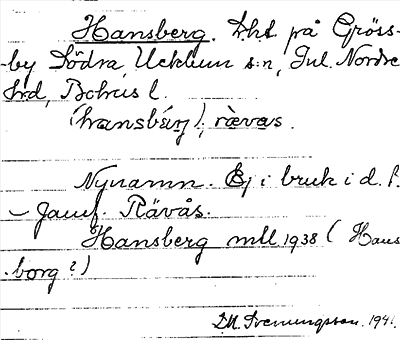 Hansberg. Lht. på Gröss-
by Södra, Ucklum s:n, Inl. Nordre
hrd, Bohus l.
(hansbærj), rævas.
Nynamn. Ej i bruk i d. f.
– Jamf. Rävås.
Hansberg mtl 1938 (Hans
borg?)
1941.